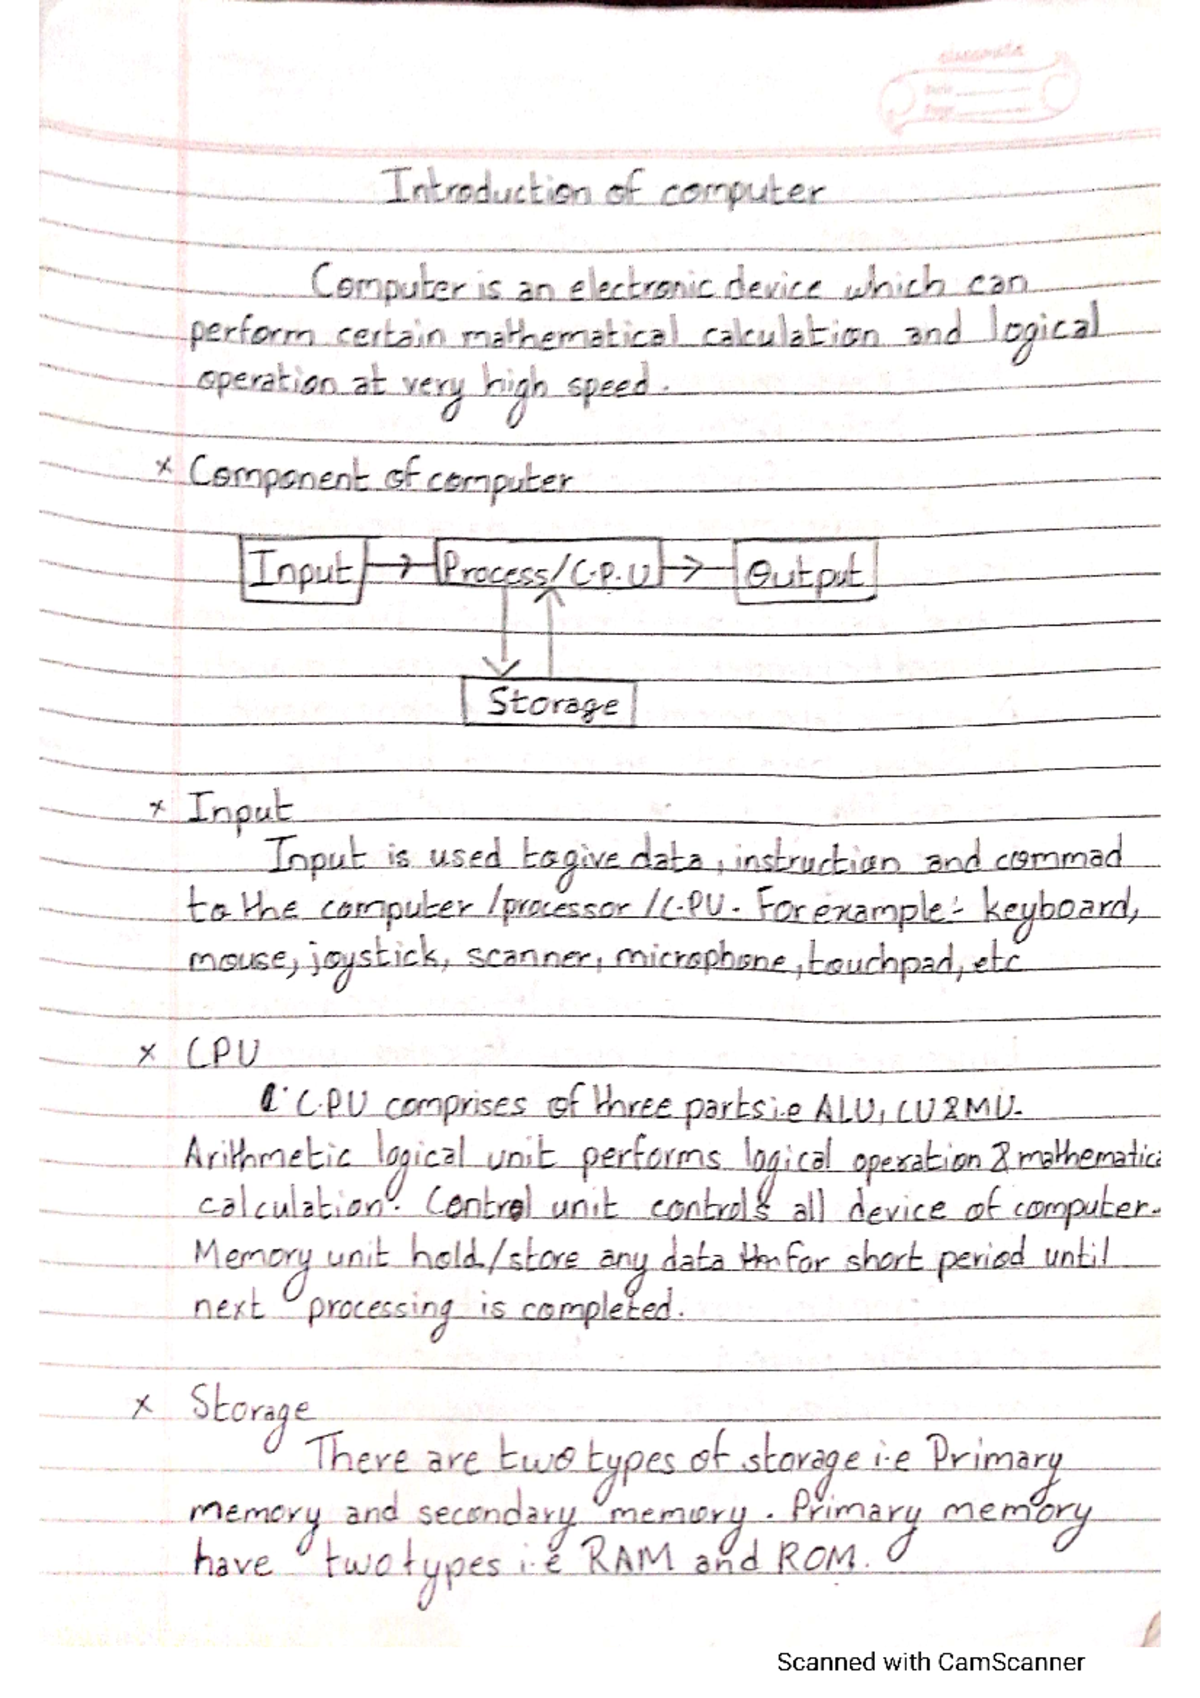 classmate
Date
Page
Introduction of computer
Computer is an electronic device which can
perform certain mathematical calculation and logical
operation at very high speed.
x Component of computer
Input Process/C.P.U Output
Storage
x Input
Input is used to give data, instruction and commad
to the computer /processor /C.PU. For example:- keyboard,
mouse, joystick, scanner, microphone, touchpad, etc
x CPU
C.P.U comprises of three parts i.e ALU, CU & MU.
Arithmetic logical unit performs logical operation & mathematica
calculation. Control unit controls all device of computer.
Memory unit hold/store any data for short period until
next processing is completed.
x Storage
There are two types of storage i.e Primary
memory and secondary memory. Primary memory
have two types i.e RAM and ROM.
Scanned with CamScanner